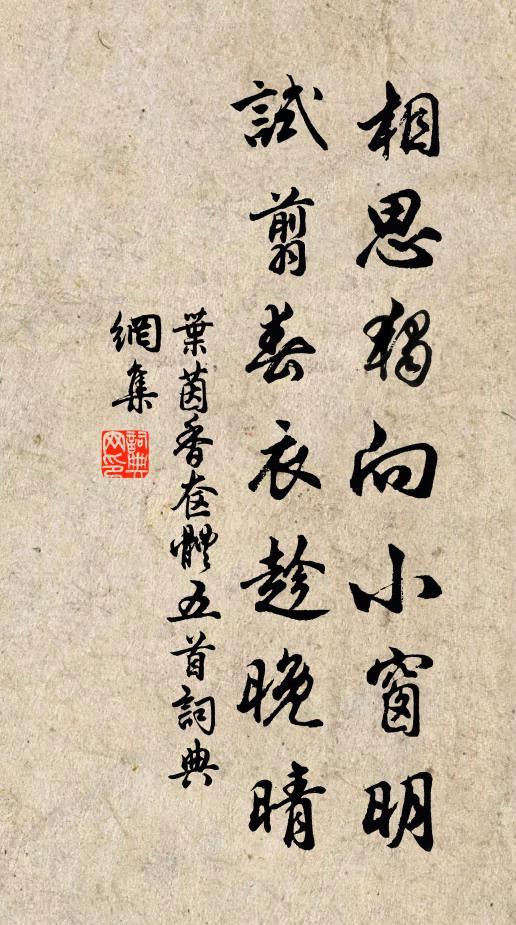 相思獨向小窗明
試翦春衣趁晚晴
葉茵香奩體五首詞典
網集
詞典網印